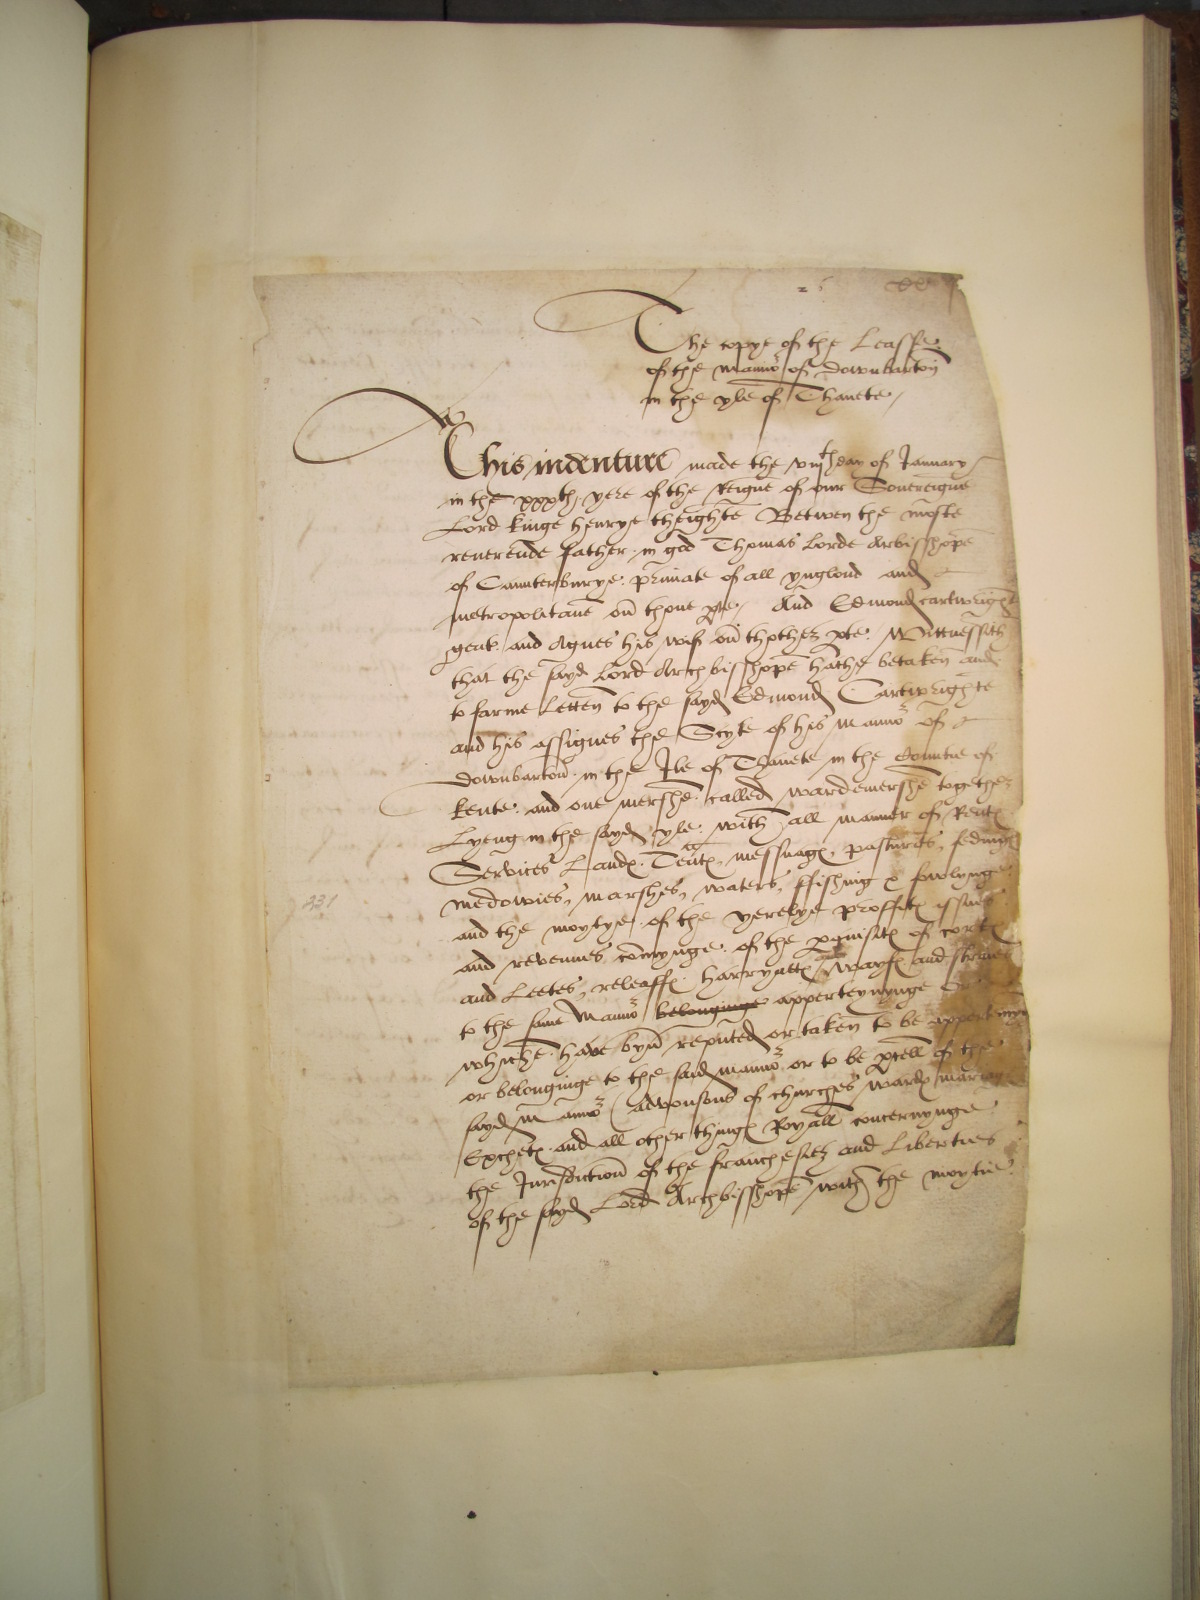 The copye of the Leasse
of the mannor of Downbarton
in the yle of Thanete
This indenture made the viijth day of January
in the xxxth yere of the Reigne of our Sovereigne
Lord kinge henrye theighte Betwen the moste
reverende father in god Thomas Lorde Arbisshope
of Caunterburye primate of all ynglond and
metropolitane on thone pte And Edmond cartwright
gent and Agnes his wif on thother pte Wittnessith
that the sayd Lord Archbisshope hathe betaken and
to farme Letten to the sayd Edmond Cartwrighte
and his assignes the Scyte of his mannor of
Downbarton in the Ile of Thanete in the Countie of
kente and one mershe called wardemershe together
Lyeng in the sayd yle with all manner of Rent
Services Land Tent messuag pastures feding
medowes marshes waters ffishing & fowlynge
and the moytye of the yerelye proffit issues
and revenues comynge of the pquisit of cort
and Leetes releaff harryatt wayf and straies
to the same Mannor belonginge apperteynynge or
whiche have byn reputed or taken to be apperteinyn
or belonginge to the said mannor or to be pcell of the
sayd mannor (advousons of churches ward mariag
Exchet and all other thing Royall concernynge
the Jurisdiction of the franchesies and Liberties
of the sayd Lord Archbisshope with the moytie
231